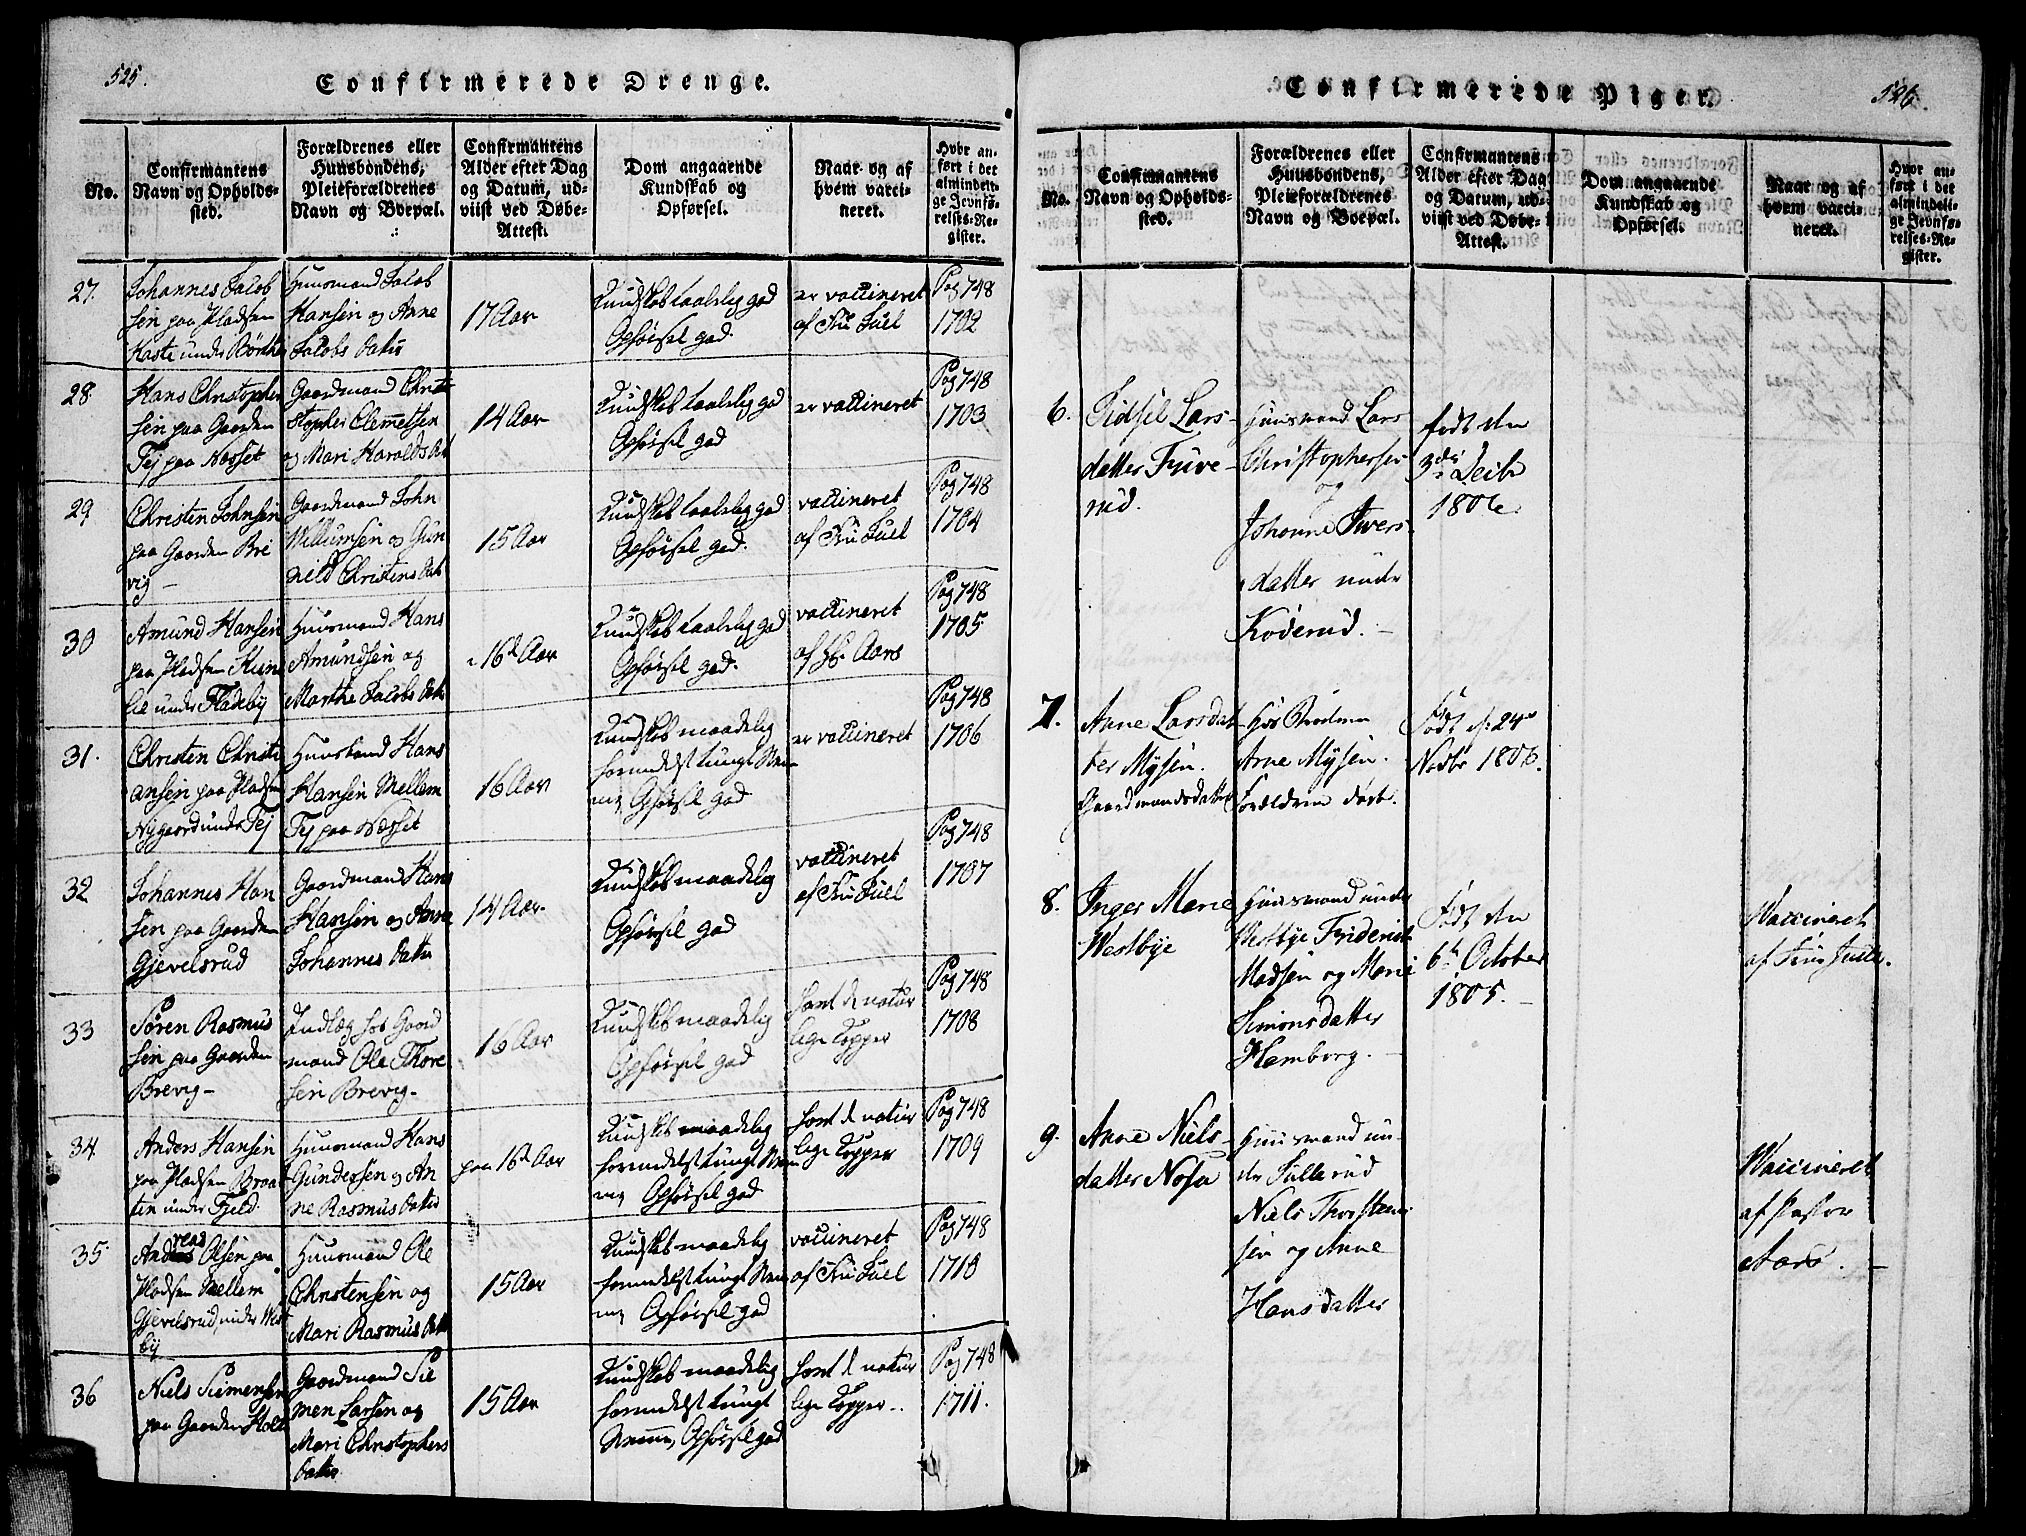 525.
Confirmerede Drenge.
No.
Confirmantens
Navn og Opholds-
sted.
Forældrenes eller
Huusbondens,
Pleieforældrenes
Navn og Boepæl.
Confirmantens
Alder efter Dag
og Datum, ud-
viist ved Døbe-
Attest.
Dom angaaende
Kundskab og
Opførsel.
Naar og af
hvem vacci-
neret.
Hvor an-
ført i det
almindeli-
ge Jevnfø-
relses-Re-
gister.
27.
Johannes Jacob
sen paa Pladsen
Kaste under
Huusmand Jacob
Hansen og Anne
Jacobs Datter
17 Aar
Kundskab taalelig god
Opførsel god.
er vaccineret
af Fru Juel
Pag 748
1702
28.
Hans Christopher
sen paa Gaarden
Tej paa Næsset
Gaardmand Chri
stopher Clemetsen
og Mari Haralds Dat
14 Aar
Kundskab taalelig god
Opførsel god
er vaccineret
Pag 748
1703
29.
Christen Johnsen
paa Gaarden Bre
vig -
Gaardmand John
Willumsen og Gun
nild Christens Dat
15 Aar
Kundskab taalelig god
Opførsel god.
vaccineret
af Fru Juel
Pag 748
1704
30
Amund Hansen
paa Pladsen
lie under Fladeby
Huusmand Hans
Amundsen og
Marthe Jacobs Datr
16de Aar
Kundskab taalelig god
Opførsel god.
vaccineret
af Hr. Aars
Pag 748
1705
31.
Christen Christi
ansen paa Pladsen
Nygaard under Tej
Huusmand Hans
Hansen Mellem
Tej paa Næsset
16 Aar
Kundskab maadelig
formedelst tungt Nem
me, Opførsel god
er vaccineret
Pag 748
1706
32
Johannes Han
sen paa Gaarden
Gjevelsrud
Gaardmand Hans
Hansen og Anne
Johannes Datter
14 Aar
Kundskab maadelig
Opførsel god
vaccineret
af Fru Juel
Pag 748
1707
33
Søren Rasmus
sen paa Gaarden
Brevig -
Indlæg hos Gaard
mand Ole Thore
sen Brevig -
16 Aar
Kundskab maadelig
Opførsel god
havt de natur
lige Kopper
Pag 748
1708
34.
Anders Hansen
paa Pladsen Braa
ten under Fjeld.
Huusmand Hans
Gundersen og An
ne Rasmus Datter
paa 16de Aar
Kundskab maadelig
formedelst tungt Nem
me, Opførsel god
havt de natur
lige Kopper
Pag 748
1709
35.
Andreas Olsen paa
Pladsen Mellem
Gjevelsrud, under West
by
Huusmand Ole
Christensen og
Mari Rasmus Datr
15 Aar
Kundskab maadelig
formedelst tungt Nem
me, Opførsel god
vaccineret
af Fru Juel
Pag 748
1710
36
Niels Simensen
paa Gaarden Holt
Gaardmand Sie
men Larsen og
Mari Christophers
Datter
15 Aar
Kundskab maadelig
formedelst tungt
Nemme, Opførsel god
havt de natur
lige Kopper..
Pag 748
1711.
526.
Confirmerede Piger.
No.
Confirmantens
Navn og Opholds-
sted.
Forældrenes eller
Huusbondens,
Pleieforældrenes
Navn og Boepæl.
Confirmantens
Alder efter Dag
og Datum, ud-
viist ved Døbe-
Attest.
Dom angaaende
Kundskab og
Opførsel.
Naar og af
hvem vacci-
neret.
Hvor an-
ført i det
almindeli-
ge Jevnfø-
relses-Re-
gister.
6.
Sidsel Lars-
datter
rud.
Huusmand Lars
Christophersen
og
Johanne Ivers-
datter under
Koderud. -
født den
3die
1806.
7.
Anne Larsdat
ter Mysen.
Gaardmandsdatter
hos Broderen
Arne Mysen.
Forældrene døde.
Født d: 24de
Novbr 1806.
8.
Inger Marie
Westbye
Huusmand under
Westbye Friderich
Madsen og Marie
Simonsdatter
Hamborg. -
Født den
6te October
1805. -
Vaccineret
af Frue Juell.
9.
Anne Niels-
datter Nosa
Huusmand un-
der Sullerud
Niels Thorsten-
sen og Anne
Hansdatter
Vaccineret
af Pastor
Aars. -